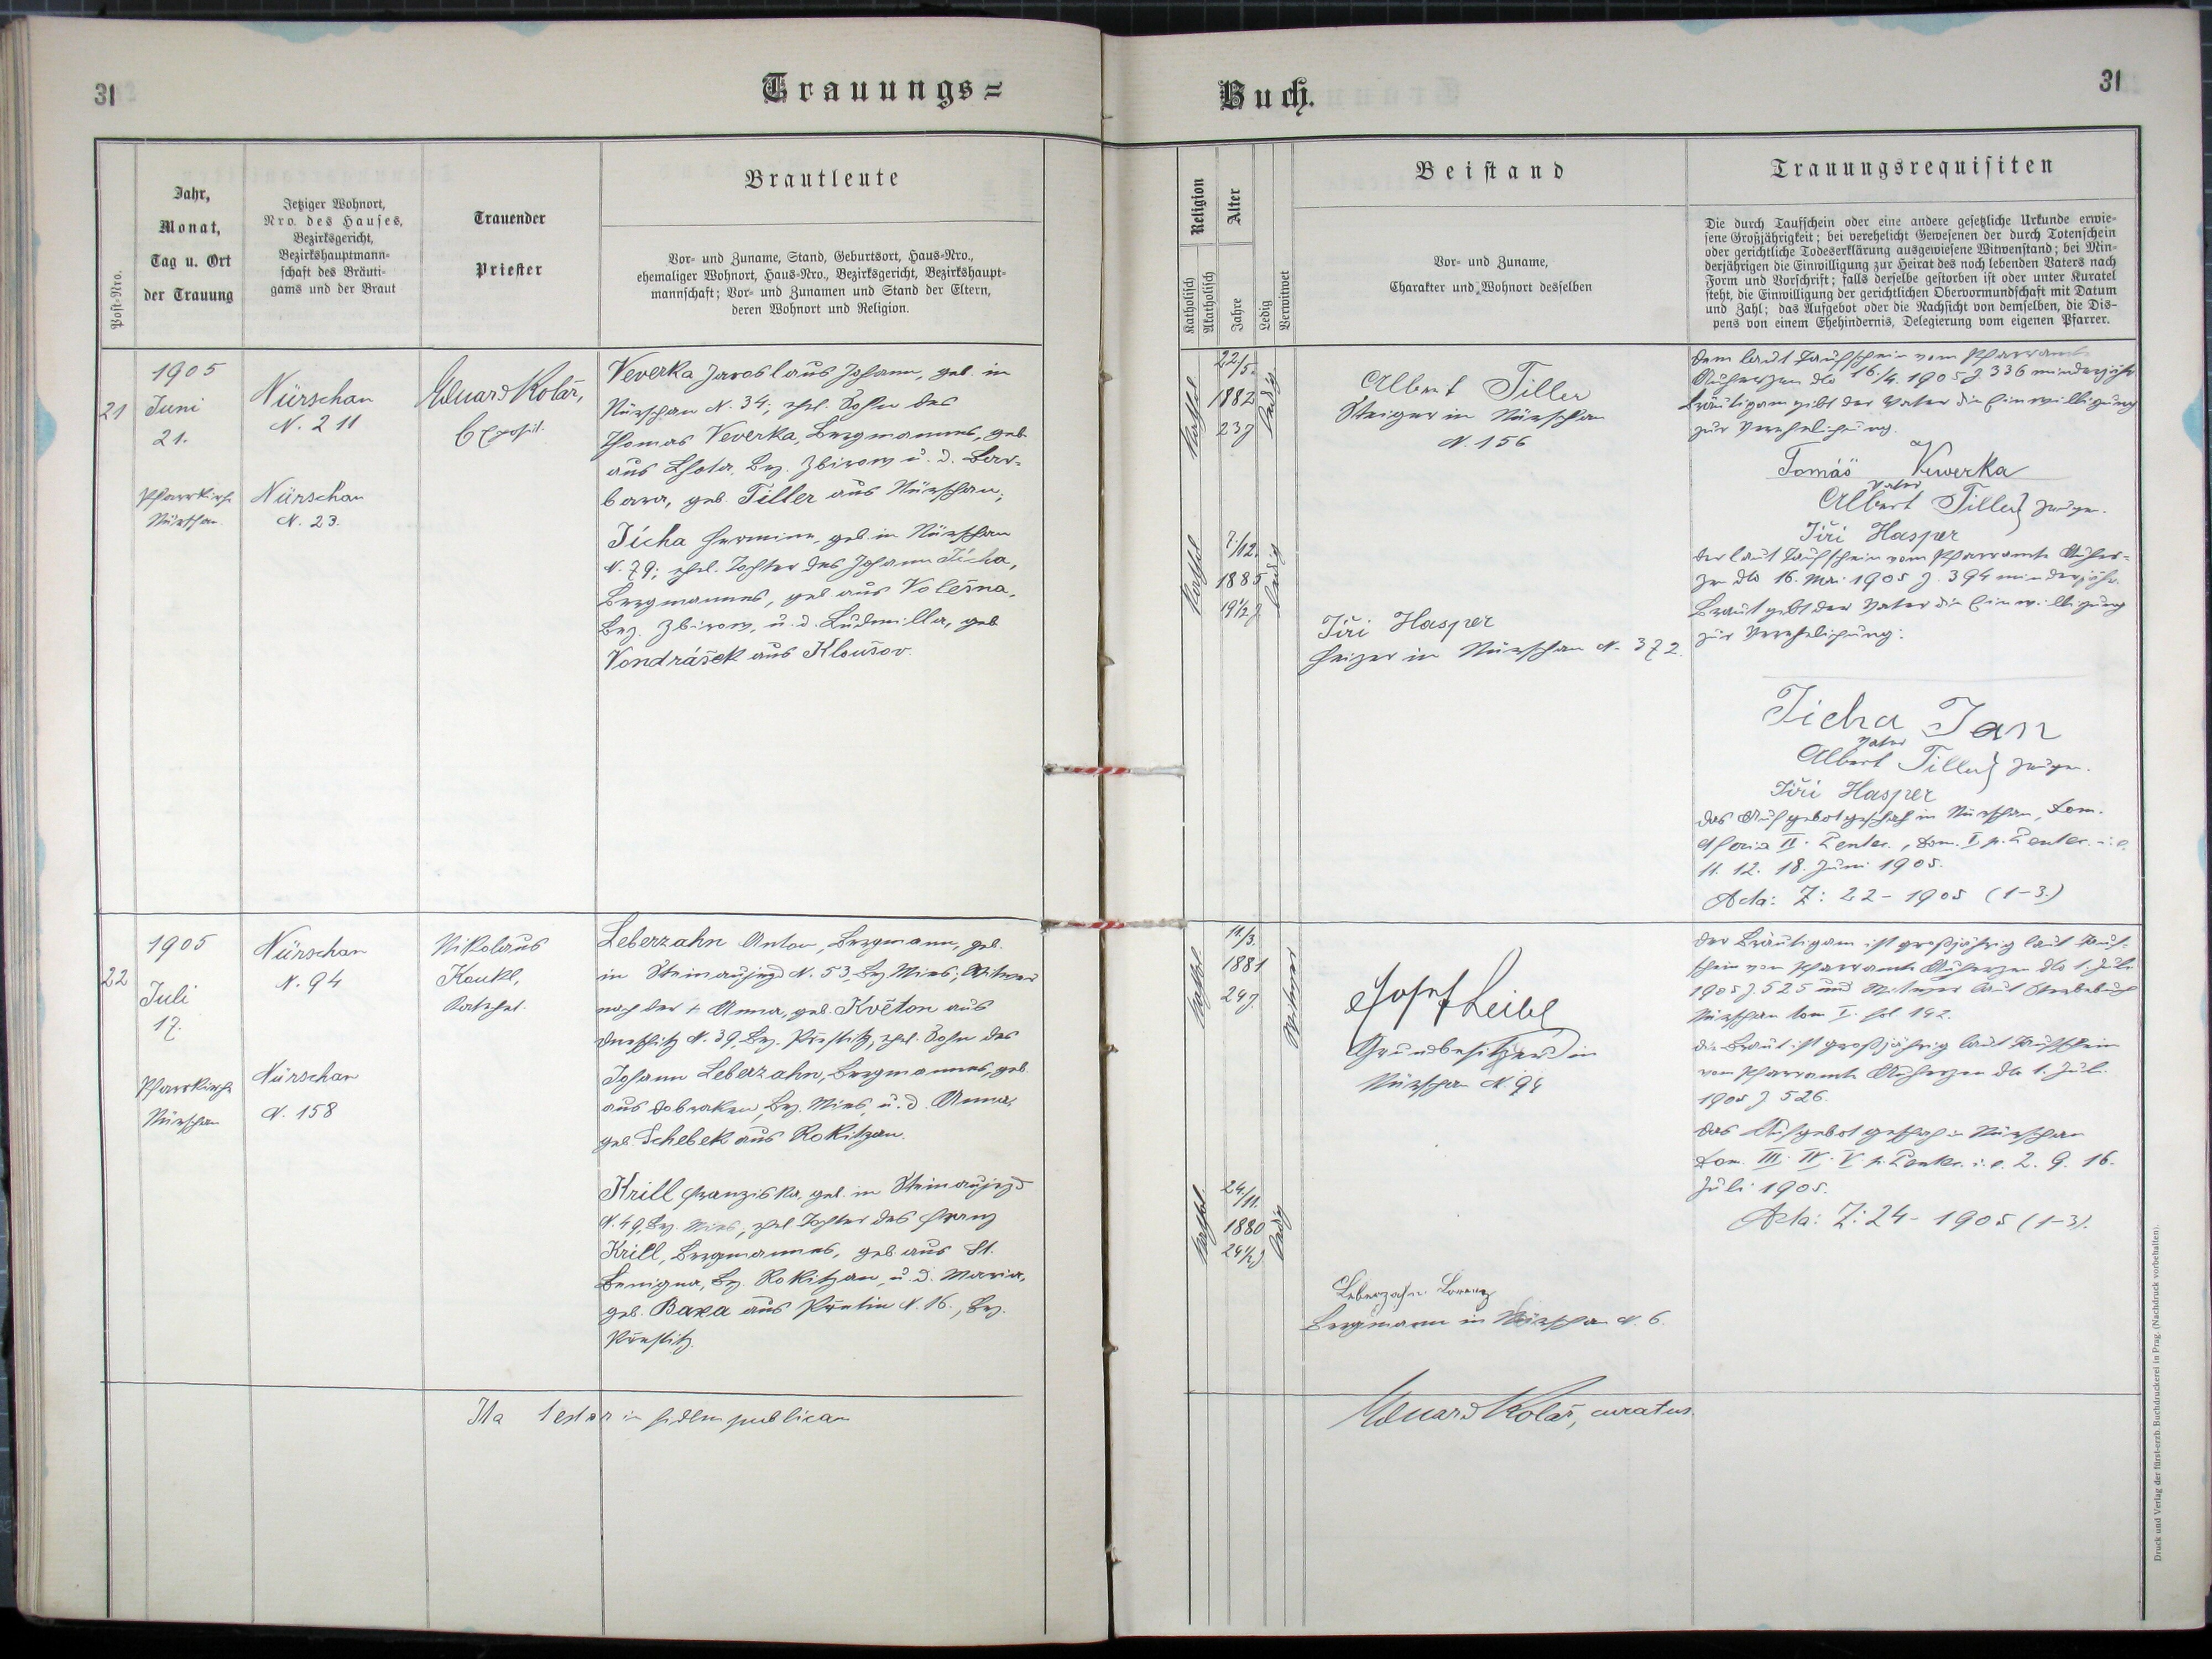 31
Trauungs=
Buch.
31
Post-Nro.
Jahr,
Monat,
Tag u. Ort
der Trauung
Jetziger Wohnort,
Nro. des Hauses,
Bezirksgericht,
Bezirkshauptmann-
schaft des Bräuti-
gams und der Braut
Trauender
Priester
Brautleute
Vor- und Zuname, Stand, Geburtsort, Haus-Nro.,
ehemaliger Wohnort, Haus-Nro., Bezirksgericht, Bezirkshaupt-
mannschaft; Vor- und Zunamen und Stand der Eltern,
deren Wohnort und Religion.
Religion
Katholisch
Akatholisch
Alter
Jahre
Ledig
Verwitwet
Beistand
Vor- und Zuname,
Charakter und Wohnort desselben
Trauungsrequisiten
Die durch Taufschein oder eine andere gesetzliche Urkunde erwie-
sene Großjährigkeit; bei verehelicht Gewesenen der durch Totenschein
oder gerichtliche Todeserklärung ausgewiesene Witwenstand; bei Min-
derjährigen die Einwilligung zur Heirat des noch lebenden Vaters nach
Form und Vorschrift; falls derselbe gestorben ist oder unter Kuratel
steht, die Einwilligung der gerichtlichen Obervormundschaft mit Datum
und Zahl; das Aufgebot oder die Nachsicht von demselben, die Dis-
pens von einem Ehehindernis, Delegierung vom eigenen Pfarrer.
21
1905
Juni
21.
Pfarrkirche
Nürschan
Nürschan
N. 211
Nürschan
N. 23.
Eduard Kolář,
Exposit.
Veverka Jaroslaus Johann, geb. in
Nürschan N. 34; ehel. Sohn des
Thomas Veverka, Bergmannes, geb.
aus Lhota, Bez. Zbirow u. d. Bar-
bara, geb. Tiller aus Nürschan;
Tícha Hermine, geb. in Nürschan
N. 79; ehel. Tochter des Johann Tícha,
Bergmannes, geb. aus Volešna,
Bez. Zbirow, u. d. Ludmilla, geb.
Vondrášek aus Kloušov.
kathol.
22/5.
1882
23 J
ledig
kathol.
7./12.
1885
19 1/2 J
ledig
Albert Tiller
Steiger in Nürschan
N. 156
Jiři Hasper
Heizer in Nürschan N. 372.
Dem laut Taufschein vom Pfarramte
Auherzen dto 16./4. 1905 Z 336 minderjähr.
Bräutigam gibt der Vater die Einwilligung
zur Verehelichung.
Tomáš Vewerka
Vater
Albert Tiller } Zeugen.
Jiři Hasper
Der laut Taufschein vom Pfarramte Auher-
zen dto 16. Mai 1905 Z. 394 minderjähr.
Braut gibt der Vater die Einwilligung
zur Verehelichung:
Ticha Jan
Vater
Albert Tiller } Zeugen.
Jiři Hasper
Das Aufgebot geschah in Nürschan, Dom.
et feria II. Pentec., Dom. I. p. Pentec. i. e.
11. 12. 18. Juni 1905.
Acta: Z: 22 - 1905 (1-3.)
22
1905
Juli
17.
Pfarrkirche
Nürschan
Nürschan
N. 94
Nürschan
N. 158
Nikolaus
Koukl,
Katechet.
Leberzahn Anton, Bergmann, geb.
in Steinaujezd N. 53, Bez. Mies; Witwer
nach der † Anna, geb. Květon aus
N. 39, Bez. Přestitz, ehel. Sohn des
Johann Leberzahn, Bergmannes, geb.
aus Dobraken, Bez. Mies, u. d. Anna,
geb. Schebek aus Rokitzan.
Krill Franziska, geb. in Steinaujezd
N. 49, Bez. Mies, ehel. Tochter des Franz
Krill, Bergmannes, geb. aus St.
Benigna, Bez. Rokitzan, u. d. Maria,
geb. Baxa aus N. 16., Bez.
Přestitz.
kathol.
11./3.
1881
24 J.
Witwer
kathol.
24./11.
1880
24 1/2 J
ledig
Josef Leibl
Grundbesitzer in
Nürschan N. 94
Leberzahn Lorenz
Bergmann in Nürschan N. 6.
Der Bräutigam ist großjährig laut Tauf-
schein vom Pfarramte Auherzen dto 1. Juli
1905 Z 525 und Witwer laut Sterbebuch
Nürschan tom I. fol 142.
Die Braut ist großjährig laut Taufschein
vom Pfarramte Auherzen dto 1. Juli
1905 Z 526.
Das Aufgebot geschah in Nürschan
Dom. III. IV. V. p. Pentec. i. e. 2. 9. 16.
Juli 1905.
Acta: Z: 24 - 1905 (1-3).
Ita testor in fidem publicam
Eduard Kolář, curatus.
Druck und Verlag der fürst-erzb. Buchdruckerei in Prag. (Nachdruck vorbehalten).